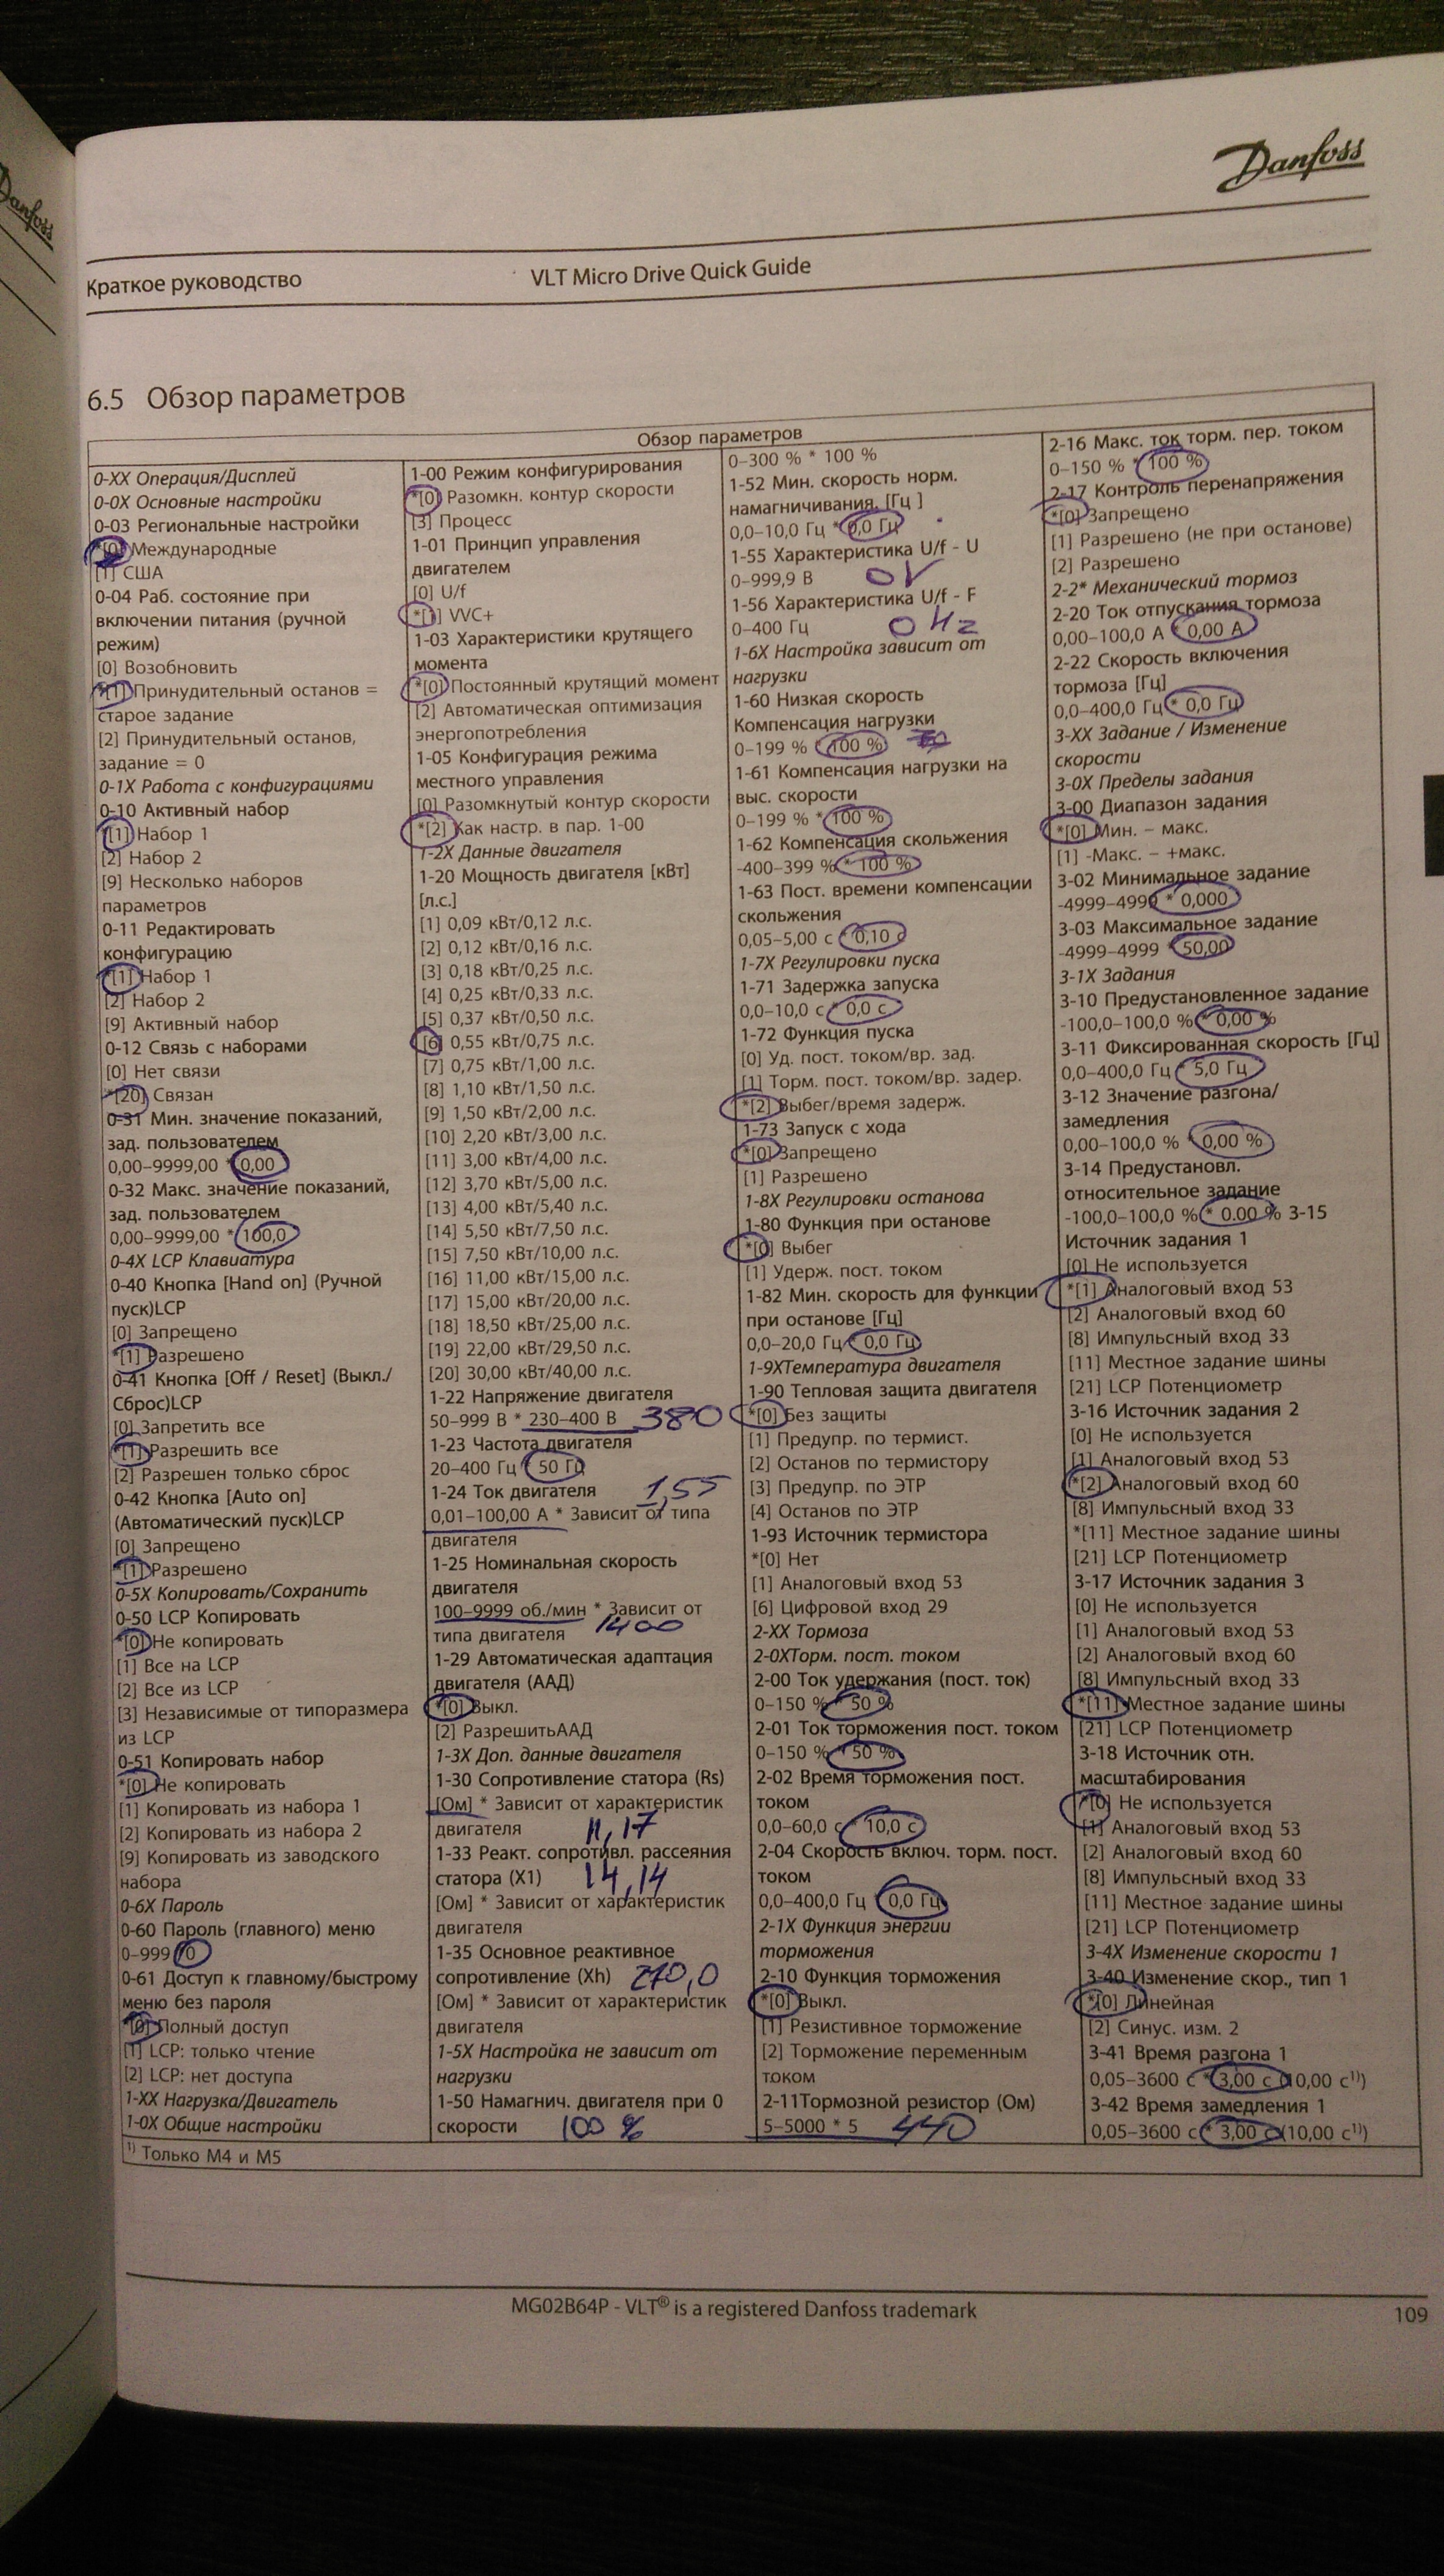 Danfoss
Danfoss
Краткое руководство
VLT Micro Drive Quick Guide
6.5 Обзор параметров
Обзор параметров
0-XX Операция/Дисплей
0-0X Основные настройки
0-03 Региональные настройки
*[0] Международные
[1] США
0-04 Раб. состояние при
включении питания (ручной
режим)
[0] Возобновить
*[1] Принудительный останов =
старое задание
[2] Принудительный останов,
задание = 0
0-1X Работа с конфигурациями
0-10 Активный набор
*[1] Набор 1
[2] Набор 2
[9] Несколько наборов
параметров
0-11 Редактировать
конфигурацию
*[1] Набор 1
[2] Набор 2
[9] Активный набор
0-12 Связь с наборами
[0] Нет связи
*[20] Связан
0-31 Мин. значение показаний,
зад. пользователем
0,00–9999,00 * 0,00
0-32 Макс. значение показаний,
зад. пользователем
0,00–9999,00 * 100,0
0-4X LCP Клавиатура
0-40 Кнопка [Hand on] (Ручной
пуск)LCP
[0] Запрещено
*[1] Разрешено
0-41 Кнопка [Off / Reset] (Выкл./
Сброс)LCP
[0] Запретить все
*[1] Разрешить все
[2] Разрешен только сброс
0-42 Кнопка [Auto on]
(Автоматический пуск)LCP
[0] Запрещено
*[1] Разрешено
0-5X Копировать/Сохранить
0-50 LCP Копировать
*[0] Не копировать
[1] Все на LCP
[2] Все из LCP
[3] Независимые от типоразмера
из LCP
0-51 Копировать набор
*[0] Не копировать
[1] Копировать из набора 1
[2] Копировать из набора 2
[9] Копировать из заводского
набора
0-6X Пароль
0-60 Пароль (главного) меню
0–999 *0
0-61 Доступ к главному/быстрому
меню без пароля
*[0] Полный доступ
[1] LCP: только чтение
[2] LCP: нет доступа
1-XX Нагрузка/Двигатель
1-0X Общие настройки
1-00 Режим конфигурирования
*[0] Разомкн. контур скорости
[3] Процесс
1-01 Принцип управления
двигателем
[0] U/f
*[1] VVC+
1-03 Характеристики крутящего
момента
*[0] Постоянный крутящий момент
[2] Автоматическая оптимизация
энергопотребления
1-05 Конфигурация режима
местного управления
[0] Разомкнутый контур скорости
*[2] Как настр. в пар. 1-00
1-2X Данные двигателя
1-20 Мощность двигателя [кВт]
[л.с.]
[1] 0,09 кВт/0,12 л.с.
[2] 0,12 кВт/0,16 л.с.
[3] 0,18 кВт/0,25 л.с.
[4] 0,25 кВт/0,33 л.с.
[5] 0,37 кВт/0,50 л.с.
[6] 0,55 кВт/0,75 л.с.
[7] 0,75 кВт/1,00 л.с.
[8] 1,10 кВт/1,50 л.с.
[9] 1,50 кВт/2,00 л.с.
[10] 2,20 кВт/3,00 л.с.
[11] 3,00 кВт/4,00 л.с.
[12] 3,70 кВт/5,00 л.с.
[13] 4,00 кВт/5,40 л.с.
[14] 5,50 кВт/7,50 л.с.
[15] 7,50 кВт/10,00 л.с.
[16] 11,00 кВт/15,00 л.с.
[17] 15,00 кВт/20,00 л.с.
[18] 18,50 кВт/25,00 л.с.
[19] 22,00 кВт/29,50 л.с.
[20] 30,00 кВт/40,00 л.с.
1-22 Напряжение двигателя
50–999 В * 230–400 В 380
1-23 Частота двигателя
20–400 Гц * 50 Гц
1-24 Ток двигателя 1,55
0,01–100,00 А * Зависит от типа
двигателя
1-25 Номинальная скорость
двигателя
100–9999 об./мин * Зависит от
типа двигателя 1400
1-29 Автоматическая адаптация
двигателя (ААД)
*[0] Выкл.
[2] РазрешитьААД
1-3X Доп. данные двигателя
1-30 Сопротивление статора (Rs)
[Ом] * Зависит от характеристик
двигателя 11,17
1-33 Реакт. сопротивл. рассеяния
статора (X1) 14,14
[Ом] * Зависит от характеристик
двигателя
1-35 Основное реактивное
сопротивление (Xh) 270,0
[Ом] * Зависит от характеристик
двигателя
1-5X Настройка не зависит от
нагрузки
1-50 Намагнич. двигателя при 0
скорости 100 %
0–300 % * 100 %
1-52 Мин. скорость норм.
намагничивания. [Гц ]
0,0–10,0 Гц * 0,0 Гц
1-55 Характеристика U/f - U
0–999,9 В 0V
1-56 Характеристика U/f - F
0–400 Гц 0 Hz
1-6X Настройка зависит от
нагрузки
1-60 Низкая скорость
Компенсация нагрузки
0–199 % * 100 %
1-61 Компенсация нагрузки на
выс. скорости
0–199 % * 100 %
1-62 Компенсация скольжения
-400–399 % * 100 %
1-63 Пост. времени компенсации
скольжения
0,05–5,00 с * 0,10 с
1-7X Регулировки пуска
1-71 Задержка запуска
0,0–10,0 с * 0,0 с
1-72 Функция пуска
[0] Уд. пост. током/вр. зад.
[1] Торм. пост. током/вр. задер.
*[2] Выбег/время задерж.
1-73 Запуск с хода
*[0] Запрещено
[1] Разрешено
1-8X Регулировки останова
1-80 Функция при останове
*[0] Выбег
[1] Удерж. пост. током
1-82 Мин. скорость для функции
при останове [Гц]
0,0–20,0 Гц * 0,0 Гц
1-9XТемпература двигателя
1-90 Тепловая защита двигателя
*[0] Без защиты
[1] Предупр. по термист.
[2] Останов по термистору
[3] Предупр. по ЭТР
[4] Останов по ЭТР
1-93 Источник термистора
*[0] Нет
[1] Аналоговый вход 53
[6] Цифровой вход 29
2-XX Тормоза
2-0XТорм. пост. током
2-00 Ток удержания (пост. ток)
0–150 % * 50 %
2-01 Ток торможения пост. током
0–150 % * 50 %
2-02 Время торможения пост.
током
0,0–60,0 с * 10,0 с
2-04 Скорость включ. торм. пост.
током
0,0–400,0 Гц * 0,0 Гц
2-1X Функция энергии
торможения
2-10 Функция торможения
*[0] Выкл.
[1] Резистивное торможение
[2] Торможение переменным
током
2-11Тормозной резистор (Ом)
5–5000 * 5 440
2-16 Макс. ток торм. пер. током
0–150 % * 100 %
2-17 Контроль перенапряжения
*[0] Запрещено
[1] Разрешено (не при останове)
[2] Разрешено
2-2* Механический тормоз
2-20 Ток отпускания тормоза
0,00–100,0 А * 0,00 А
2-22 Скорость включения
тормоза [Гц]
0,0–400,0 Гц * 0,0 Гц
3-XX Задание / Изменение
скорости
3-0X Пределы задания
3-00 Диапазон задания
*[0] Мин. – макс.
[1] -Макс. – +макс.
3-02 Минимальное задание
-4999–4999 * 0,000
3-03 Максимальное задание
-4999–4999 * 50,00
3-1X Задания
3-10 Предустановленное задание
-100,0–100,0 % * 0,00 %
3-11 Фиксированная скорость [Гц]
0,0–400,0 Гц * 5,0 Гц
3-12 Значение разгона/
замедления
0,00–100,0 % * 0,00 %
3-14 Предустановл.
относительное задание
-100,0–100,0 % * 0.00 % 3-15
Источник задания 1
[0] Не используется
*[1] Аналоговый вход 53
[2] Аналоговый вход 60
[8] Импульсный вход 33
[11] Местное задание шины
[21] LCP Потенциометр
3-16 Источник задания 2
[0] Не используется
[1] Аналоговый вход 53
*[2] Аналоговый вход 60
[8] Импульсный вход 33
*[11] Местное задание шины
[21] LCP Потенциометр
3-17 Источник задания 3
[0] Не используется
[1] Аналоговый вход 53
[2] Аналоговый вход 60
[8] Импульсный вход 33
*[11] Местное задание шины
[21] LCP Потенциометр
3-18 Источник отн.
масштабирования
*[0] Не используется
[1] Аналоговый вход 53
[2] Аналоговый вход 60
[8] Импульсный вход 33
[11] Местное задание шины
[21] LCP Потенциометр
3-4X Изменение скорости 1
3-40 Изменение скор., тип 1
*[0] Линейная
[2] Синус. изм. 2
3-41 Время разгона 1
0,05–3600 с * 3,00 с (10,00 с¹⁾)
3-42 Время замедления 1
0,05–3600 с * 3,00 с (10,00 с¹⁾)
¹⁾ Только M4 и M5
MG02B64P - VLT® is a registered Danfoss trademark
109